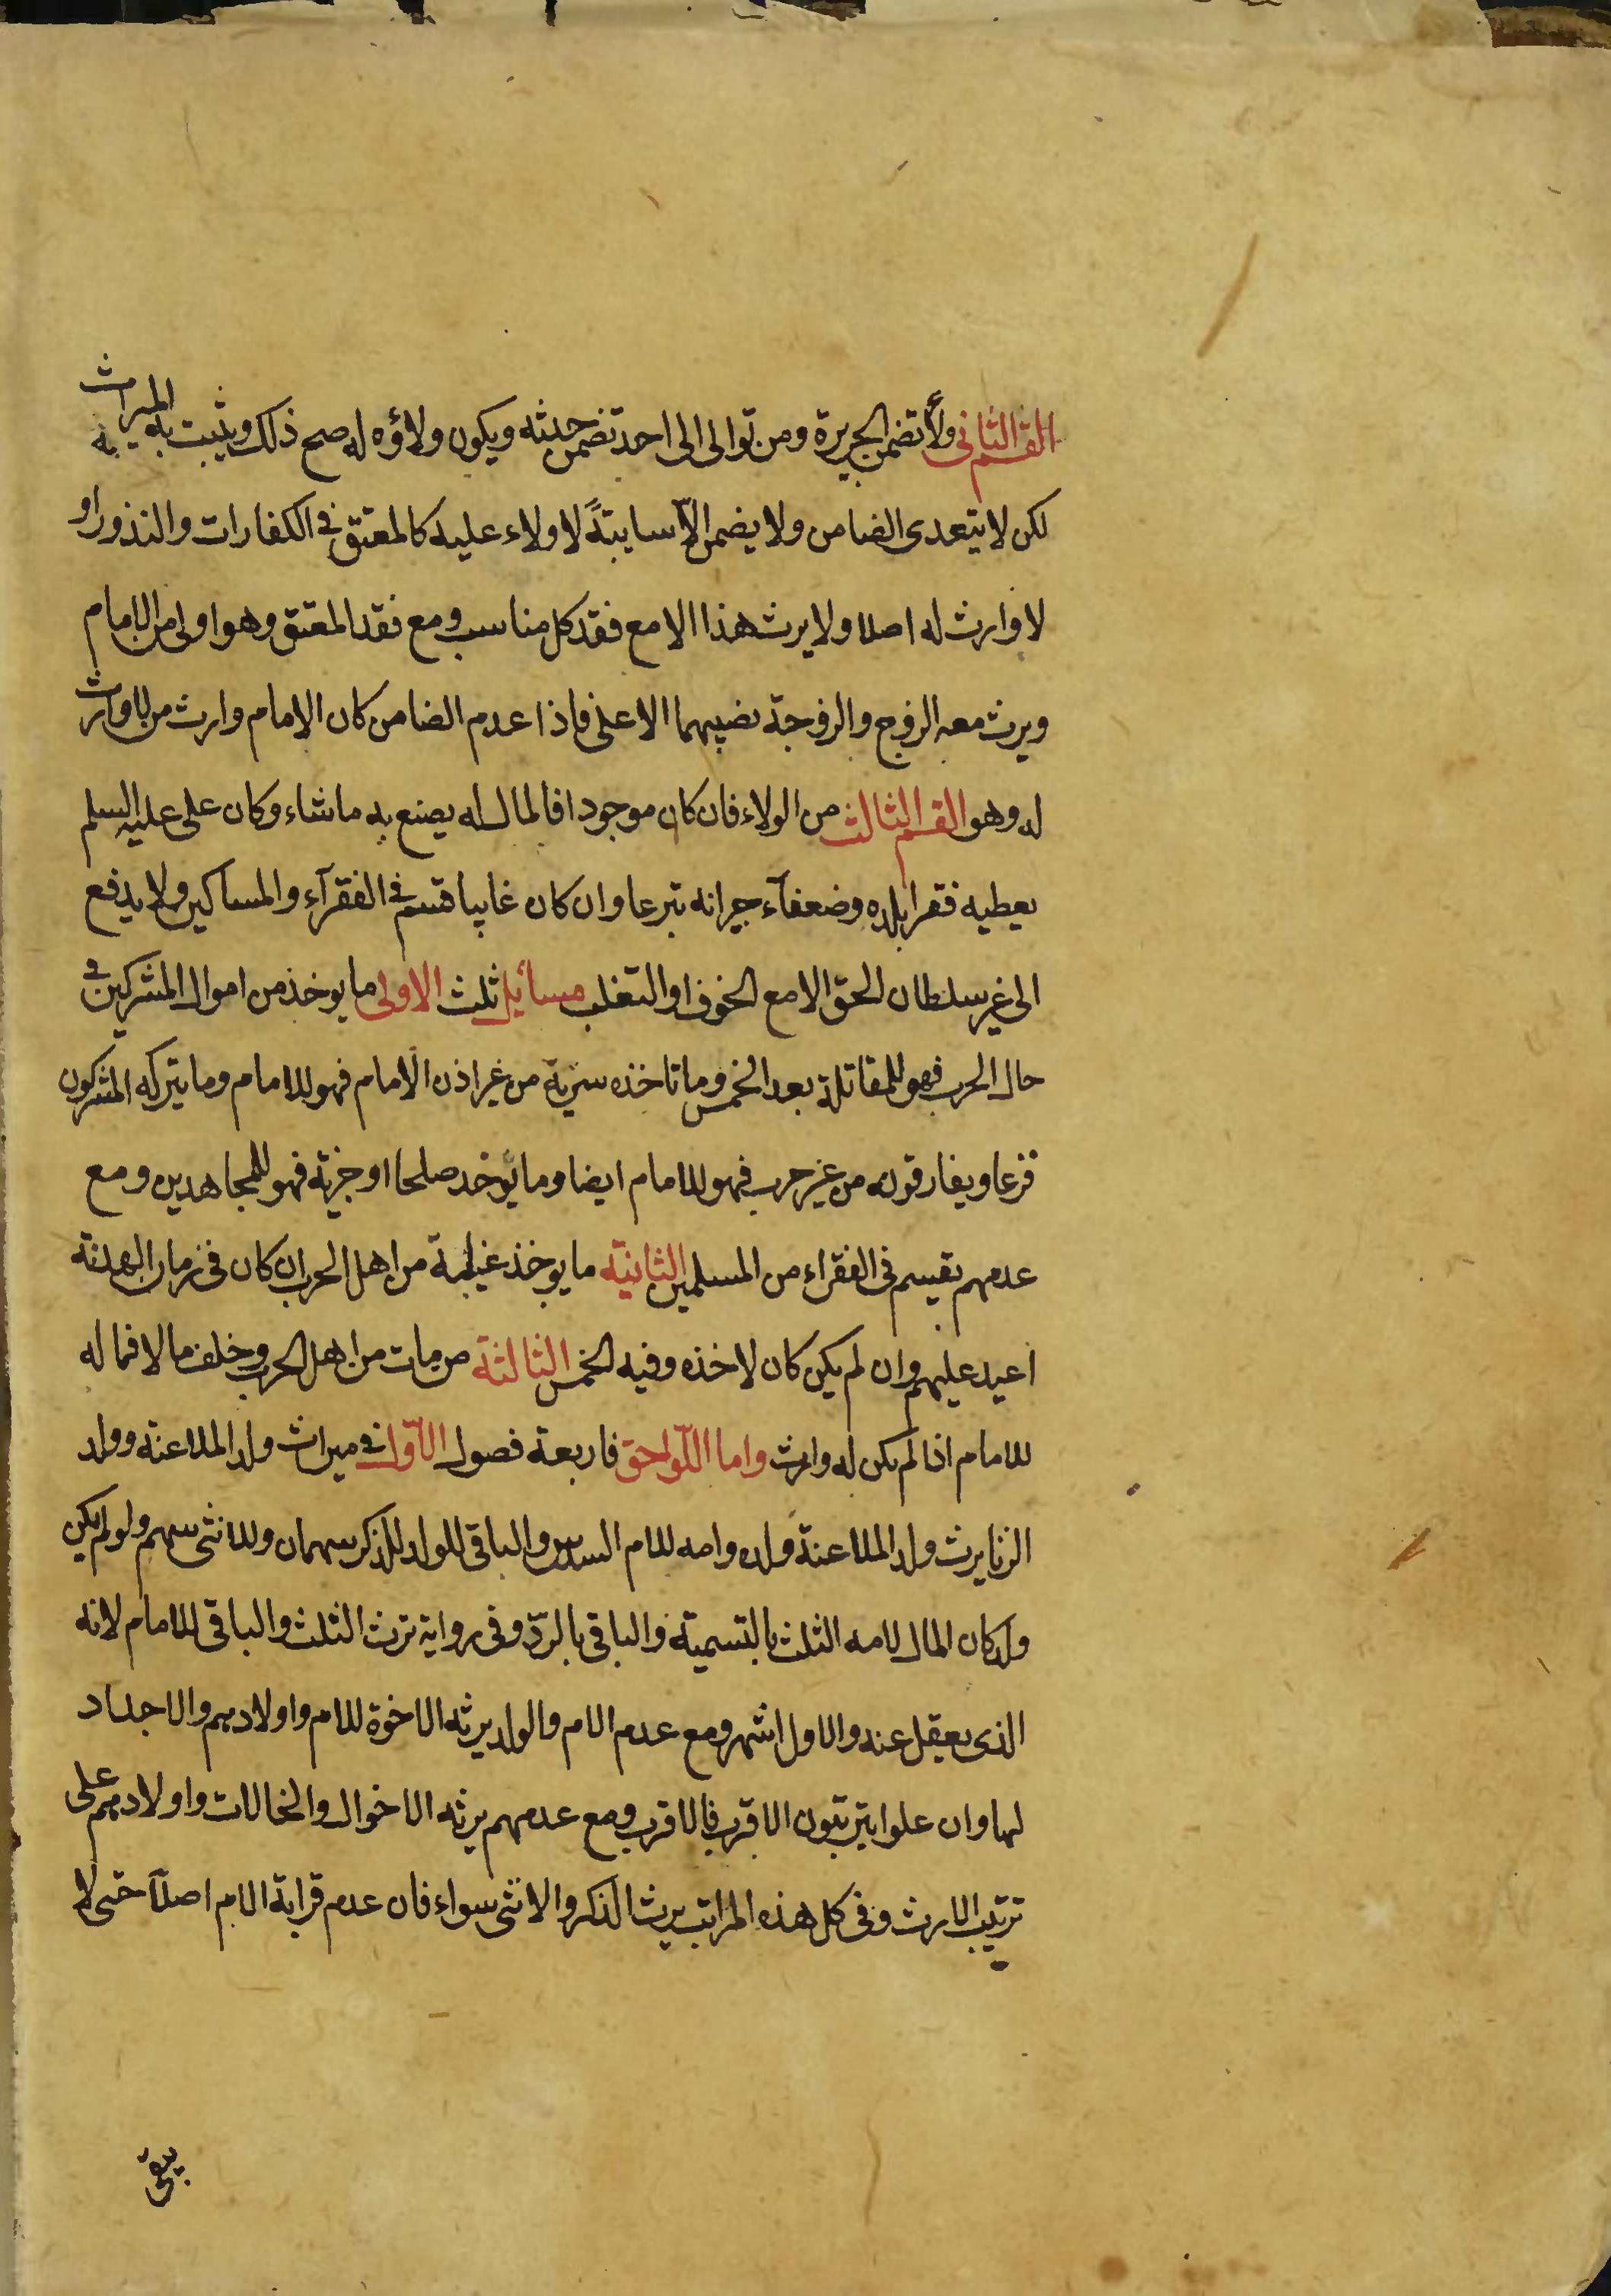 القسم الثانى ولاء تضمن الجريرة ومن توالى الى احد تضمن حدثه ويكون ولاؤه له صح ذلك ويثبت به الميراث
لكن لا يتعدى الضامن ولا يضمن الاّ سايبةً لا ولاء عليه كالمعتق فى الكفارات والنذور او
لا وارث له اصلا ولا يرث هذا الا مع فقد كل مناسب ومع فقد المعتق وهو اولى من الامام
ويرث معه الزوج والزوجة نصيبهما الاعلى فاذا عدم الضامن كان الامام وارث من لا وارث
له وهو القسم الثالث من الولاء فان كان موجودا فالمال له يصنع به ما شاء وكان على عليه السلم
يعطيه فقرا بلده وضعفآء جيرانه تبرعا وان كان غايبا قسم فى الفقرآء والمساكين ولا يدفع
الى غير سلطان الحق الا مع الخوف او التغلب مسائل ثلث الاولى ما يوخذ من اموال المشركين فى
حال الحرب فهو للمقاتلة بعد الخمس وما تاخذه سرية من غير اذن الامام فهو للامام وما يتركه المشركون
فزعا ويفارقونه من غير حرب فهو للامام ايضا وما يوخد صلحا او جزية فهو للمجاهدين ومع
عدمهم يقسم فى الفقراء من المسلمين الثانية ما يوخذ غيلة من اهل الحرب ان كان فى زمان الهدنة
اعيد عليهم وان لم يكن كان لاخذه وفيه الخمس الثالثة من مات من اهل الحرب وخلف مالا فماله
للامام اذا لم يكن له وارث واما اللّواحق فاربعة فصول الاّول فى ميراث ولد الملاعنة وولد
الزنا يرث ولد الملاعنة ولده وامه للام السدس والباقى للولد للذكر سهمان وللانثى سهم ولو لم يكن
ولد كان المال لامه الثلث بالتسمية والباقى بالردّ وفى رواية ترث الثلث والباقى للامام لانه
الذى يعقل عنه والاول اشهر ومع عدم الام والولد يرثه الاخوة للام واولادهم والاجداد
لها وان علوا يترتبون الاقرب فالاقرب ومع عدمهم يرثه الاخوال والخالات واولادهم على
ترتيب الارث وفى كل هذه المراتب يرث الذكر والانثى سواء فان عدم قرابة الام اصلاً حتى لا
يبقى